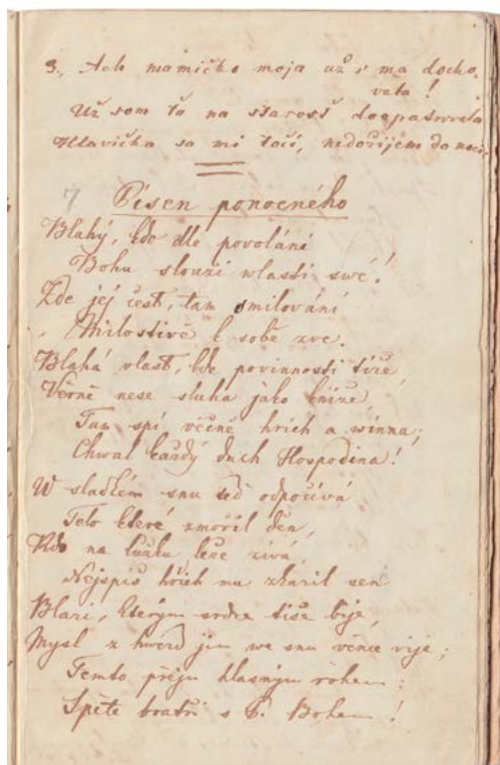 3., Ach mamičko moja už s' ma docho,
vala!
Už som ťa na starosť doopatrvala
Hlavička sa mi točí, nedožijem do noci.
7
Písen ponocného
Blahý, kdo dle povolání
Bohu slouzi wlasti swé!
Zde jej čest, tam smilování
Milostivě k sobě zve.
Blahá vlast, kde povinnosti tíže,
Věrně nese sluha jako kníže,
Tam spí věčně hřích a winna;
Chwal každý duch Hospodina!
W sladkém snu teď odpočívá
Telo které zmořil den,
Kdo na lůžku leze zívá,
Nejspíš hřích mu zkazil sen
Blazi, kterým srdce tiše bije,
Mysl z hwezd jim we snu věnce vije;
Temto přeju hlasným rohem:
Spěte bratři s P. Bohem!